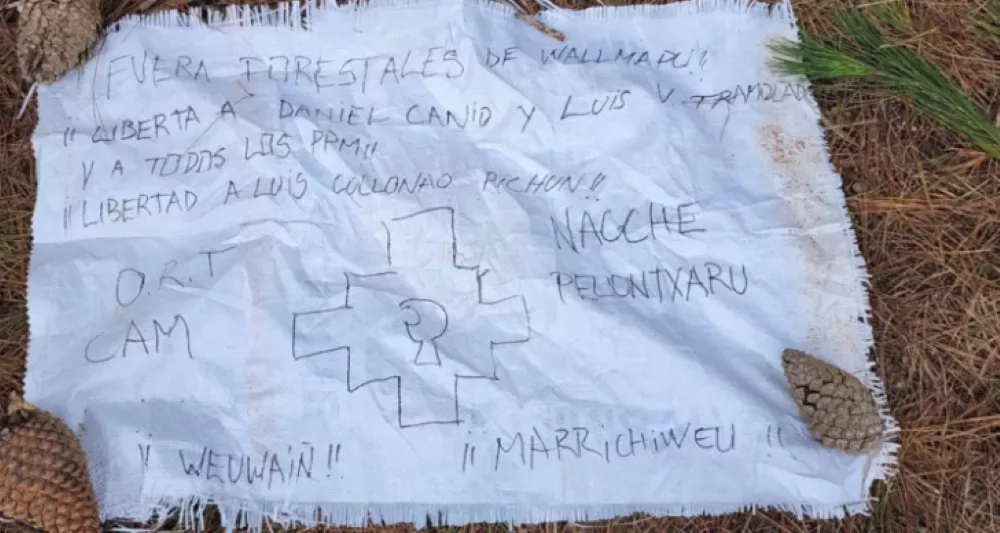 FUERA FORESTALES DE WALLMAPU!!
¡¡ LIBERTA A DANIEL CANIO Y LUIS V. TRANOLAO
Y A TODOS LOS PPM¡¡
¡¡LIBERTAD A LUIS COLLONAO RICHUN!!
O.R.T
CAM
NAGCHE
PELONTXARU
¡ WEUWAIÑ!!
¡¡MARRICHIWEU !!